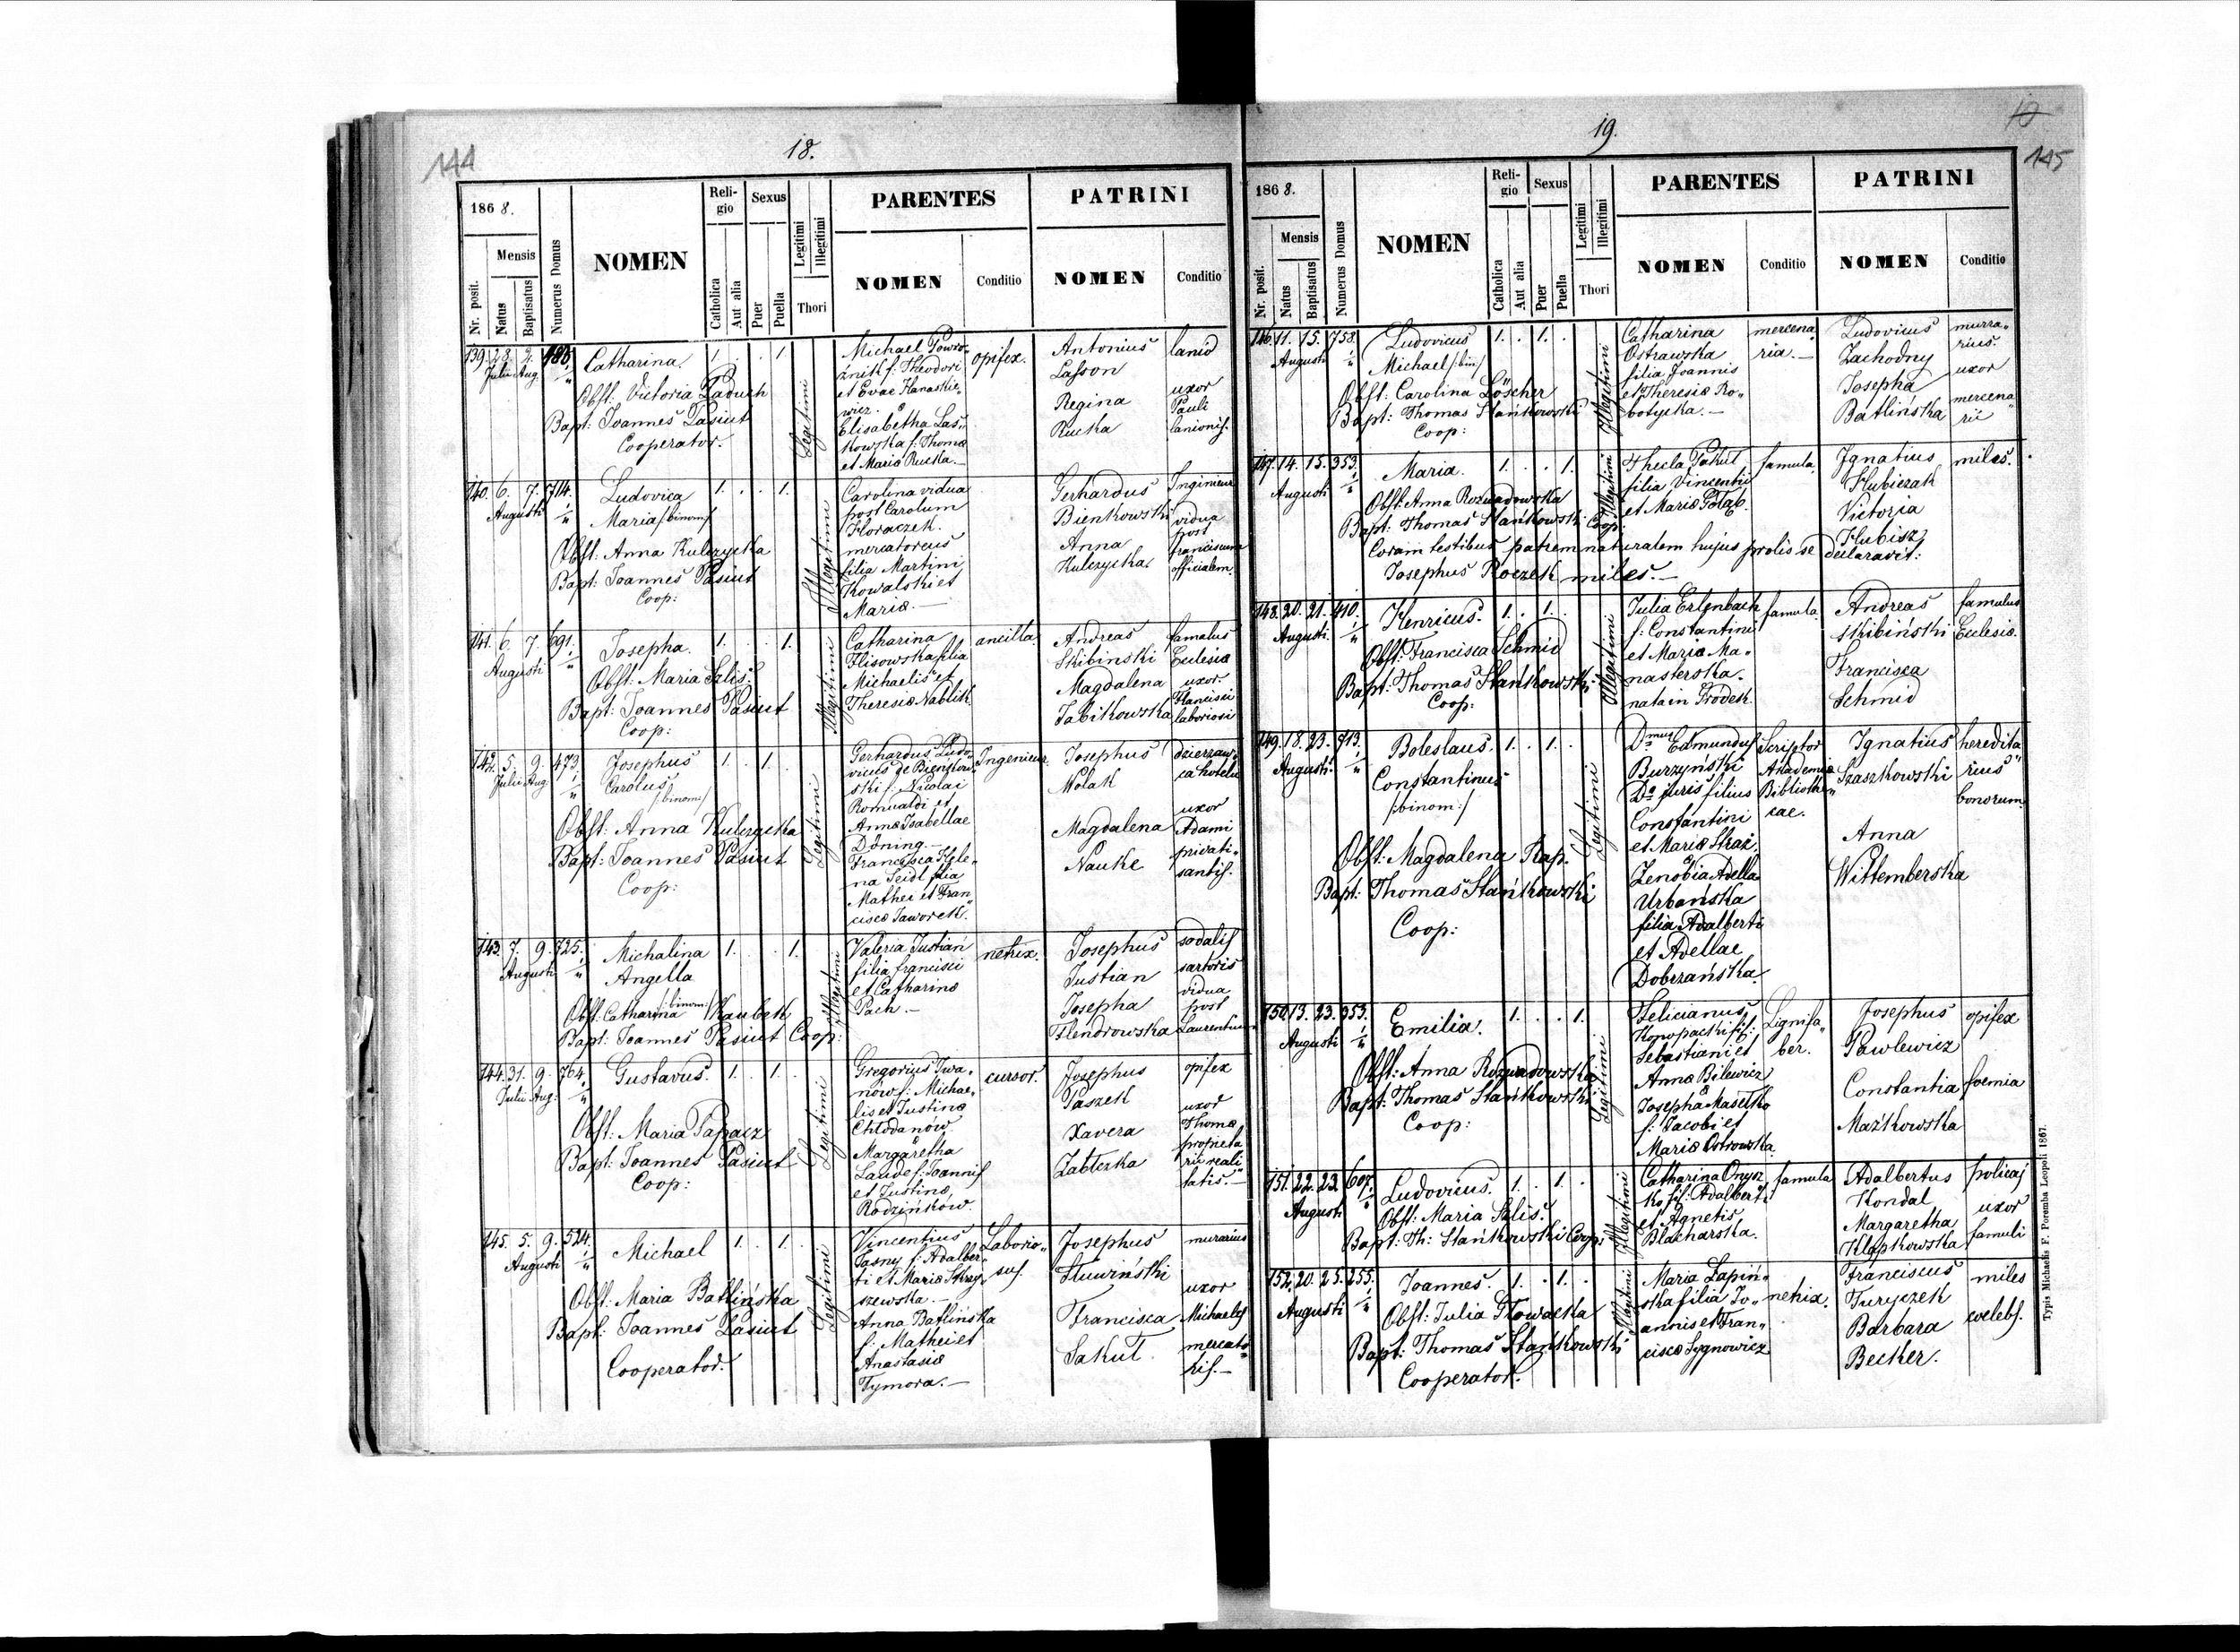 144
18.
186 8.
Mensis
Nr. posit.
Natus
Baptisatus
Numerus Domus
NOMEN
Reli-
gio
Catholica
Aut alia
Sexus
Puer
Puella
Legitimi
Illegitimi
Thori
PARENTES
NOMEN
Conditio
PATRINI
NOMEN
Conditio
139. 28. 2.
Julii Aug.
Catharina.
Obst: Victoria Paduch
Bapt: Joannes Pasiut
Cooperator.
1. . . 1
Legitimi
Michael Powro„
źnik f. Theodori
et Evae Kanaskie„
wicz. &
Elisabetha Las„
kowska f. Thomæ
et Mariæ Rucka.—
opifex.
Antonius
Lasson
Regina
Rucka
lanio
uxor
Pauli
lanionis.
140. 6. 7. 714.
Augusti
Ludovica
Maria /:binom:/
Obst. Anna Kulczycka
Bapt: Joannes Pasiut
Coop:
1. . . 1.
Illegitimi
Carolina vidua
post Carolum
Horaczek.
mercatoreus
filia Martini
Kowalski et
Mariæ.—
Gerhardus
Bienkowski
Anna
Kulczycka
Ingenieur
vidua
post
Franciscum
officialem.
141. 6. 7. 691.
Augusti
Josepha.
Obst. Maria Szlis.
Bapt: Joannes Pasiut
Coop:
1. . . 1.
Illegitimi
Catharina
Hlisowska filia
Michaelis et
Theresiæ Nablik.
ancilla
Andreas
Skibinski
Magdalena
Jabikowska
famulus
Ecclesiæ
uxor
Francisci
laboriosi
142. 5. 9. 473.
Julii Aug.
Josephus
Carolus
/:binom:/
Obst. Anna Kulczycka
Bapt: Joannes Pasiut
Coop:
1. . 1.
Legitimi
Gerhardus Ludo„
vicus de Bieńkow„
ski f. Nicolai
Romualdi et
Annæ Isabellae
Döning.—
Francisca Hele„
na Seidl filia
Mathei et Fran„
ciscæ Jaworek.
Ingenieur
Josephus
Wolak
Magdalena
Nauke
dzierżaw„
ca hotelu
uxor
Adami
privati„
santis.
143. 7. 9. 725.
Augusti
Michalina
Angella
/:binom:/
Obst. Catharina Kaubek
Bapt: Joannes Pasiut Coop:
1. . . 1.
Illegitimi
Valeria Justian
filia Francisci
et Catharinæ
Pach.—
netrix.
Josephus
Justian
Josepha
Flendrowska
sodalis
sartoris
vidua
post
Laurentium
144. 31. 9. 764.
Julii Aug.
Gustavus.
Obst. Maria Papacz
Bapt: Joannes Pasiut
Coop:
1. . 1.
Legitimi
Gregorius Iwa„
now f. Michae„
lis et Justinæ
Chłodanów
&
Margaretha
Laude f. Joannis
et Justinæ
Rodzinków.
cursor.
Josephus
Paszek
Xavera
Zabłezka
opifex
uxor
Thomæ
proprieta„
rii reali„
tatis.—
145. 5. 9. 524.
Augusti
Michael
Obst. Maria Batlińska
Bapt: Joannes Pasiut
Cooperator.
1. . 1.
Legitimi
Vincentius
Jasny f. Adalber„
ti et Mariæ Skrzy„
szewska.—
Anna Batlińska
f. Mathei et
Anastasiæ
Tymora.—
Laborio„
sus.
Josephus
Słuwiński
Francisca
Sakut.
murarius
uxor
Michaelis
mercato„
ris.—
19.
145
186 8.
Mensis
Nr. posit.
Natus
Baptisatus
Numerus Domus
NOMEN
Reli-
gio
Catholica
Aut alia
Sexus
Puer
Puella
Legitimi
Illegitimi
Thori
PARENTES
NOMEN
Conditio
PATRINI
NOMEN
Conditio
146. 11. 15. 758.
Augusti
Ludovicus
Michael /:bin:/
Obst. Carolina Löscher
Bapt: Thomas Stańkowski
Coop:
1. . 1.
Illegitimi
Catharina
Ostrawska
filia Joannis
et Theresiæ Ro„
botycka.—
mercena„
ria.—
Ludovicus
Zachodny
Josepha
Batlińska
murra„
rius.
uxor
mercena„
rii
147. 14. 15. 353.
Augusti
Maria.
Obst: Anna Rozwadowska
Bapt: Thomas Stańkowski Coop:
1. . . 1.
Illegitimi
Thecla Pakut
filia Vincentii
et Mariæ Gołąb.
famula.
Ignatius
Hubiczak
Victoria
Hubisz
miles.
Coram testibus patrem naturalem hujus prolis se declaravit:
Josephus Roczek miles.—
148. 20. 21. 410.
Augusti.
Henricus.
Obst. Francisca Schmid
Bapt: Thomas Stańkowski
Coop:
1. . 1.
Illegitimi
Julia Erlenbach
f. Constantini
et Mariæ Ma„
nasterska.
nata in Grodek.
famula.
Andreas
Skibiński
Francisca
Schmid
famulus
Ecclesiæ.
149. 18. 23. 713.
Augusti
Boleslaus.
Constantinus
/:binom:/
Obst: Magdalena Rap.
Bapt: Thomas Stańkowski
Coop:
1. . 1.
Legitimi
Dmus Edmundus
Burzyński
Dr juris filius
Constantini
et Mariæ Straz.
&
Zenobia Adella
Urbańska
filia Adalberti
et Adellae
Dobrzańska.
Scriptor
Akademiæ
Bibliothe„
cae.
Ignatius
Szaszkowski
Anna
Wittemberska
heredita„
rius
bonorum
150. 13. 23. 953.
Augusti
Emilia.
Obst: Anna Rozwadowska
Bapt: Thomas Stańkowski
Coop:
1. . . 1.
Legitimi
Felicianus
Konopacki fil:
Sebastiani et
Annæ Bilewicz
&
Josepha Masełko
f. Jacobi et
Mariæ Ostrowska
Lignifa„
ber.
Josephus
Pawlewicz
Constantia
Maźkowska
opifex
foemia
151. 22. 23. 607.
Augusti
Ludovicus.
Obst: Maria Szlis.
Bapt: Th: Stańkowski Coop:
1. . 1.
Illegitimi
Catharina Onysz„
ko fil: Adalberti
et Agnetis
Blacharska.
famula
Adalbertus
Kondal
Margaretha
Kłapkowska
policaj
uxor
famuli
152. 20. 25. 255.
Augusti
Joannes.
Obst: Julia Głowacka
Bapt: Thomas Stańkowski
Cooperator.
1. . 1.
Illegitimi
Maria Łapiń„
ska filia Jo„
annis et Fran„
ciscæ Sygnowicz
netrix.
Franciscus
Turyczek
Barbara
Becker.
miles
coelebs.
Typis Michaelis F. Poremba Leopoli 1867.